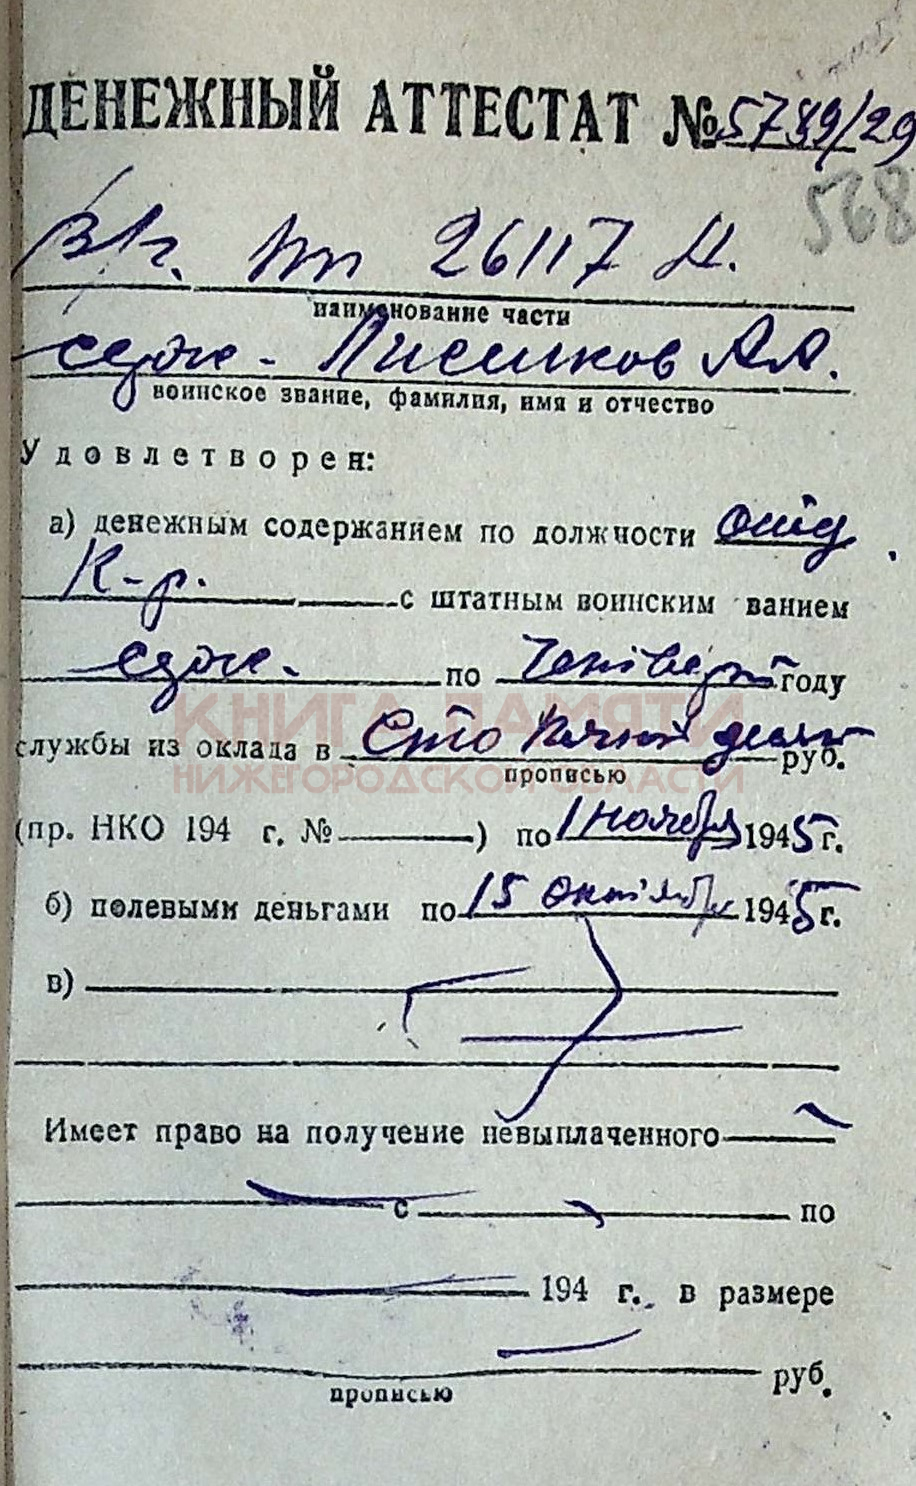 ДЕНЕЖНЫЙ АТТЕСТАТ № 5789/29
568
В/ч. пп 26117 Н.
наименование части
серж. А. А.
воинское звание, фамилия, имя и отчество
Удовлетворен:
а) денежным содержанием по должности
К-р. с штатным воинским ванием
серж. по четверт году
службы из оклада в Сто руб.
прописью
(пр. НКО 194 г. № ) по 1 ноября 1945 г.
б) полевыми деньгами по 15 октября 1945 г.
в)
Имеет право на получение невыплаченного
с по
194 г. в размере
руб.
прописью
КНИГА ПАМЯТИ
НИЖЕГОРОДСКОЙ ОБЛАСТИ